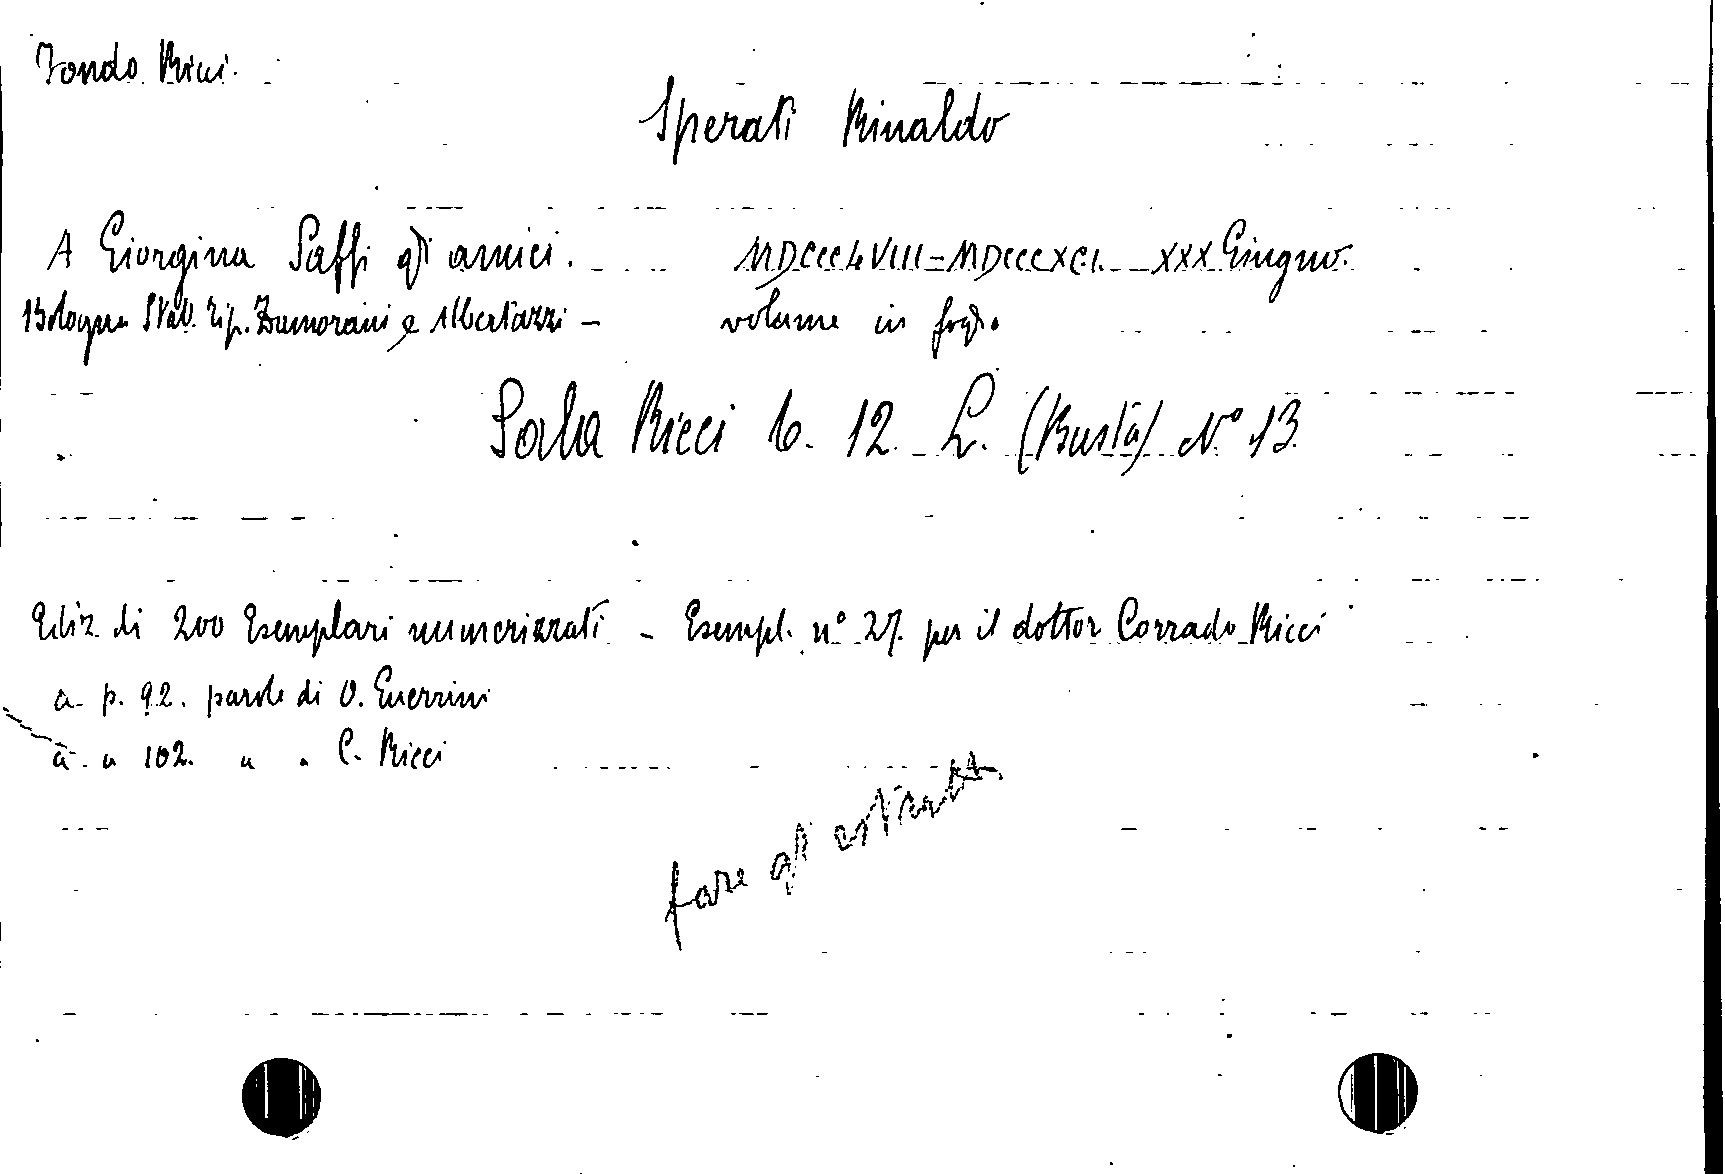 Fondo Ricci.
Sperati Rinaldo
A Giorgina Saffi gli amici. MDCCCLVIII-MDCCCXCI. XXX Giugno.
Bologna Stab. Tip. Zamorani e Albertazzi - volume in fogl.
Sala Ricci b. 12 L. (Busta) N° 13
Ediz. di 200 Esemplari numerizzati - Esempl. n° 27. per il dottor Corrado Ricci
a p. 92. parole di O. Guerrini
a " 102. " " C. Ricci
fare gli estratti